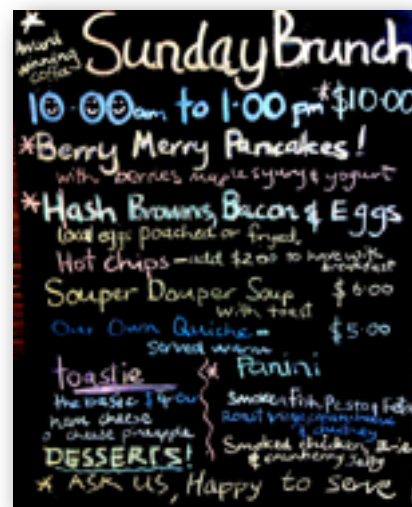 Award
winning
coffee
Sunday Brunch
10.00am to 1.00 pm *$10.00
*Berry Merry Pancakes!
with berries maple syrup & yogurt
*Hash Browns, Bacon & Eggs
local eggs poached or fryed.
Hot Chips - add $2.00 to have with
breakfast
Souper Douper Soup $6.00
with toast
Our Own Quiche - $5.00
served warm
toastie * Panini
the basic
ham cheese
cheese pineapple
smoken fish, Pesto & Feta
Roast
& chutney
Smoked chicken, Brie
& cranberry Jelly
DESSERTS!
* ASK US, Happy to serve